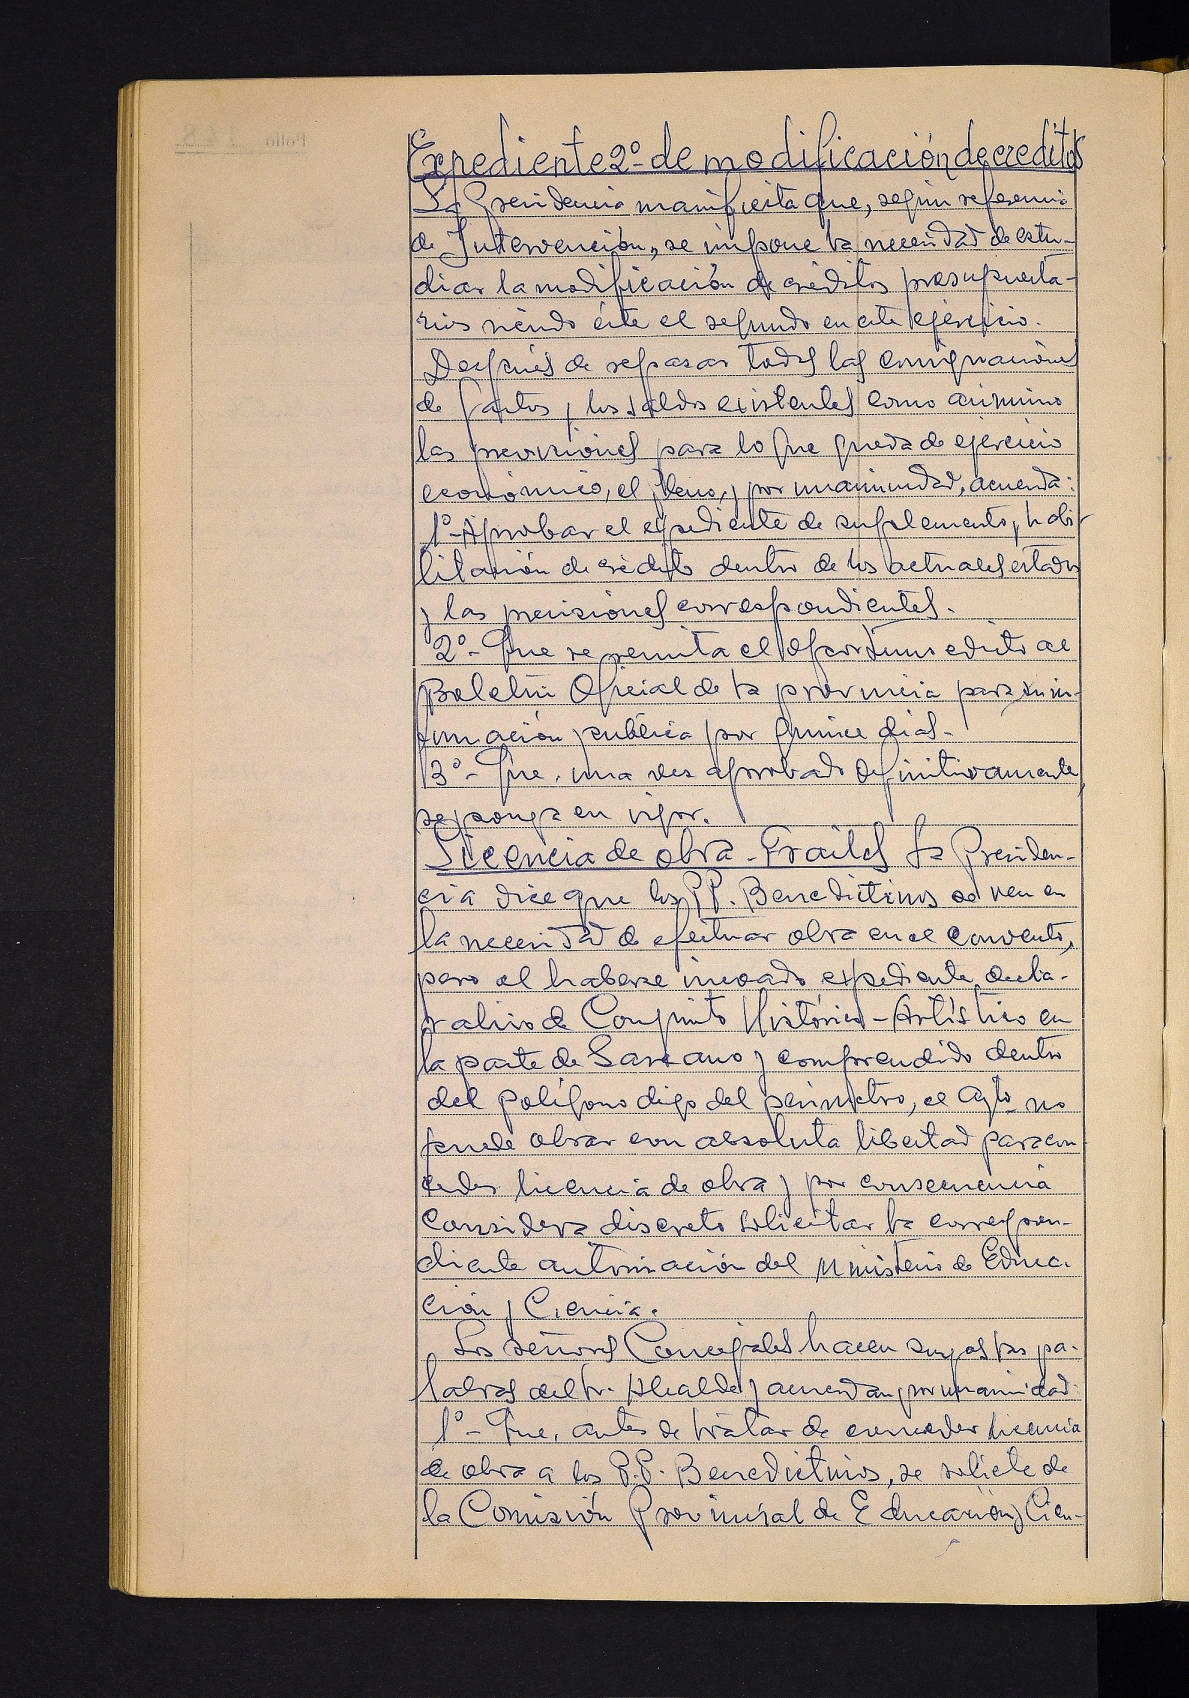 Expediente 2º- de modificación de creditos
La Presidencia manifiesta que, según referencia
de Intervención, se impone la necesidad de estu-
diar la modificación de créditos presupuesta-
rios siendo éste el segundo en este ejercicio.
Después de repasar todas las consignaciones
de gastos y los saldos existentes como asimismo
las previsiones para lo que queda de ejercicio
económico, el Pleno, y por unanimidad, acuerda:
1º- Aprobar el expediente de suplemento y habi-
litación de crédito dentro de los actuales estados
y las precisiones correspondientes.
2º- Que se remita el oportuno edicto al
Boletín Oficial de la provincia para su in-
formación pública por quince días.-
3º- Que, una vez aprobado definitivamente,
se ponga en vigor.
Licencia de obra - Frailes La Presiden-
cia dice que los PP. Benedictinos se ven en
la necesidad de efectuar obra en el convento,
pero al haberse incoado expediente decla-
rativo de Conjunto Histórico-Artístico en
la parte de Lazcano y comprendido dentro
del polígono digo del perímetro, el Ayto no
puede obrar con absoluta libertad para con
ceder licencia de obra y por consecuencia
considera discreto solicitar la correspon-
diente autorización del Ministerio de Educa-
ción y Ciencia.
Los señores Concejales hacen suyas las pa-
labras del Sr. Alcalde y acuerdan por unanimidad:
1º- Que, antes de tratar de conceder licencia
de obra a los P.P. Benedictinos, se solicite de
la Comisión Provincial de Educación y Cien-